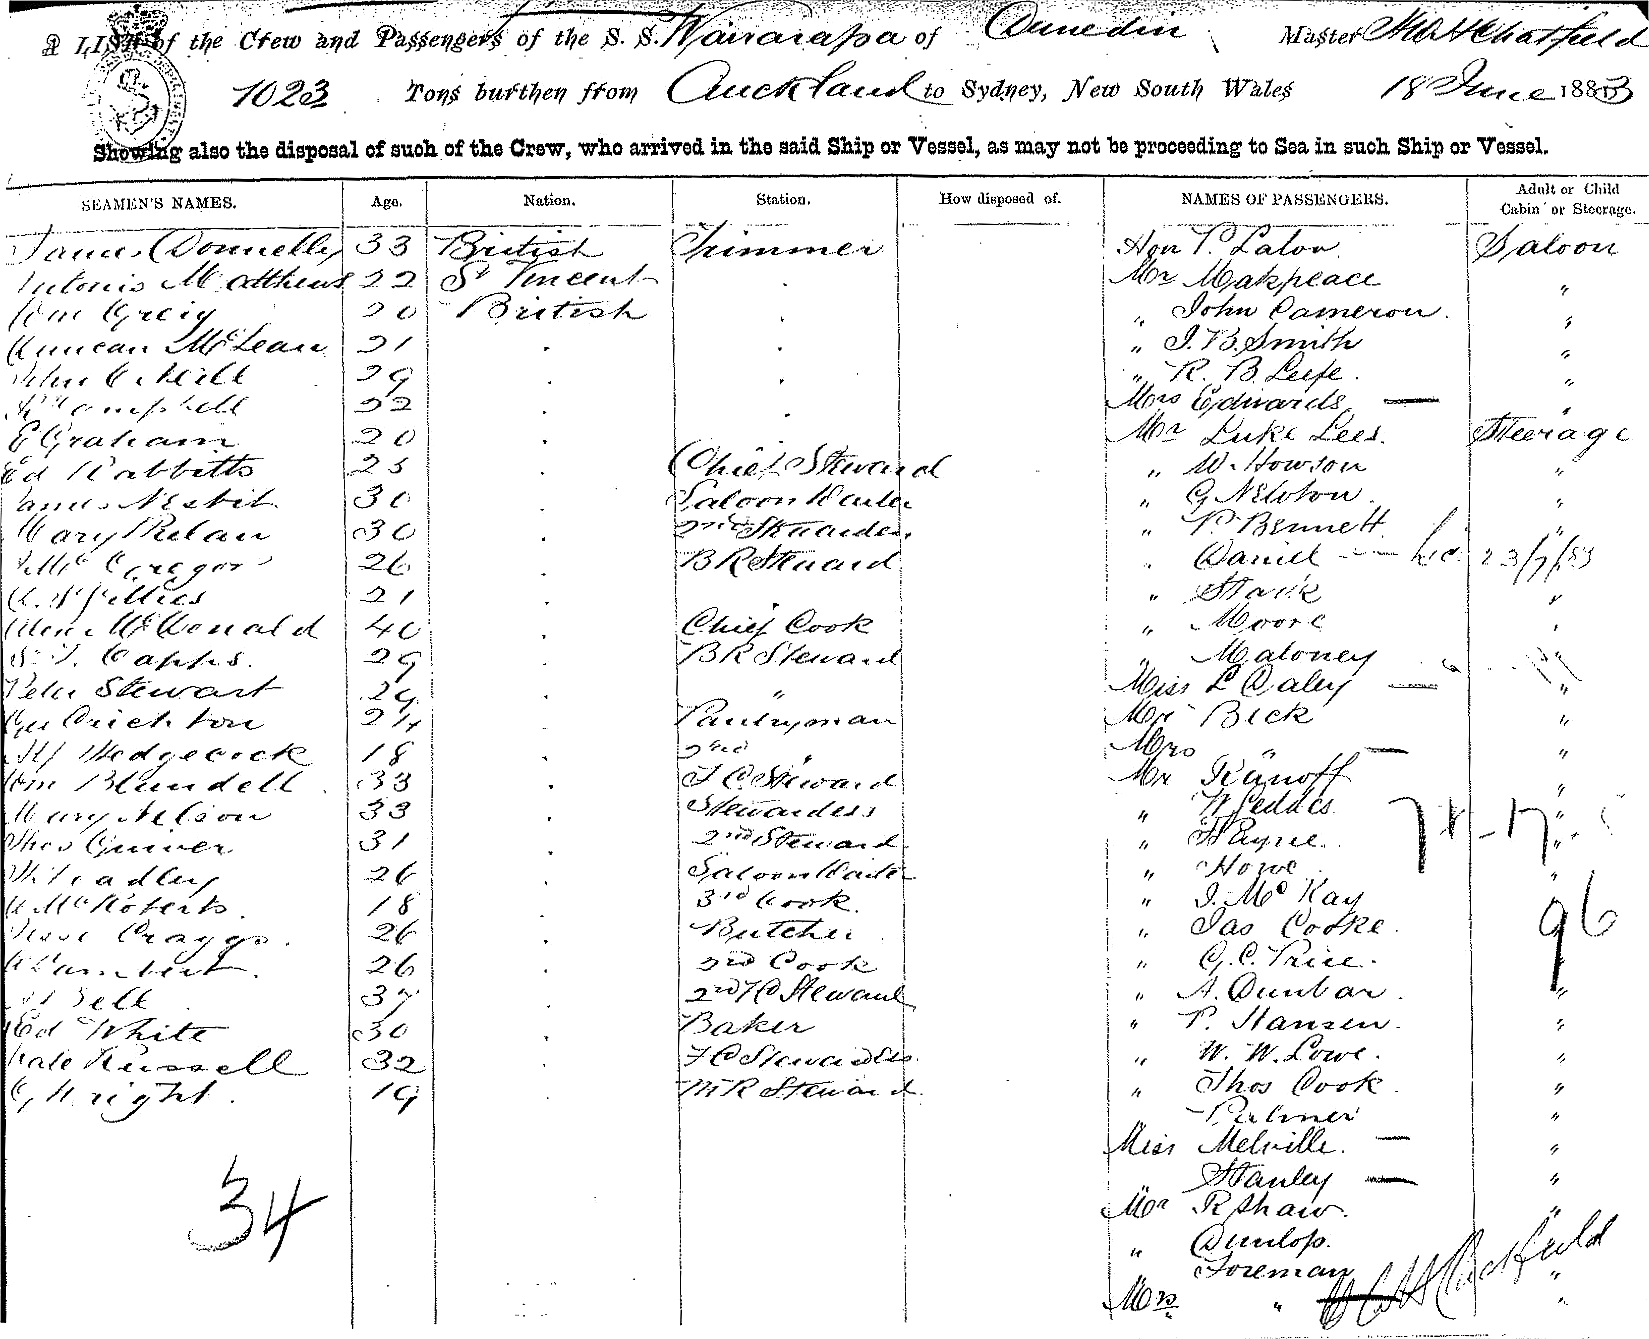 A LIST of the Crew and Passengers of the S. S. Wairarapa of Dunedin Master Chatfield
1023 Tons burthen from Auckland to Sydney, New South Wales 18 June 1883
Showing also the disposal of such of the Crew, who arrived in the said Ship or Vessel, as may not be proceeding to Sea in such Ship or Vessel.
SEAMEN'S NAMES. Age. Nation. Station. How disposed of. NAMES OF PASSENGERS. Adult or Child Cabin or Steerage.
James Donnelly 33 British Trimmer Hon P. Saloon
Antonio Matthews 22 St Vincent . Mr Makpeace "
Wm Greig 20 British . " John Cameron. "
Duncan McLean 21 . . " J. B. Smith "
John O'Neill 29 . . " R. B. Leefe. "
Campbell 22 . . Mrs Edwards — "
E Graham 20 . Mr Luke Lees. Steerage
Ed Rabbitts 25 . Chief Steward " W. Howson "
James Nesbit 30 . Saloon Waiter " G Newton. "
Mary Phelan 30 . 2nd Stewardess " P. Bennett "
McGregor 26 . B R Steward " Daniel 23/7/83
Gillies 21 . . " Stack "
McDonald 40 . Chief Cook " Moore "
Capps. 29 . B R Steward " Maloney
Peter Stewart 29 . " Miss L Caley — "
Geo Crichton 24 . Pantryman Mr Beck "
Alf Hedgecock 18 . 2nd " Mrs " — "
Wm Blundell 33 . F C Steward Mr "
Mary Nelson 33 . Stewardess " W Geddes. "
Thos Guiver 31 . 2nd Steward " Hayne. "
Headley 26 . Saloon Waiter " Howe "
McRoberts. 18 . 3rd Cook. " J. McKay
Jesse Craggs. 26 . Butcher " Jas Cooke. 96
Lambert. 26 . 2nd Cook " G. C. Price.
Bell 37 . 2nd F C Steward " A. Dunbar. "
Ed White 30 . Baker " P. Hansen. "
Kate Russell 32 . F C Stewardess. " W. W. Lowe. "
G Wright. 19 . M R Steward. " Thos Cook "
Palmer "
Miss Melville. — "
" Stanley — "
34 Mr R Shaw. "
" Dunlop.
Foreman "
Mrs " Chatfield "